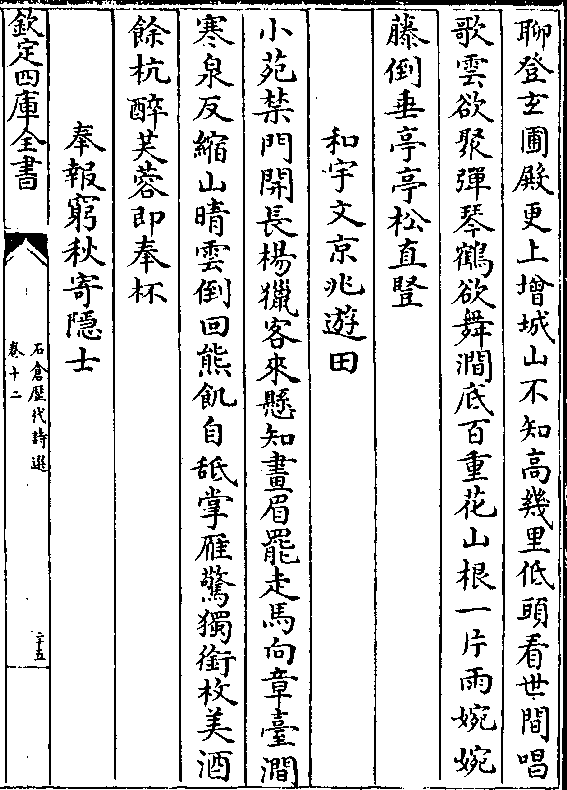 聊登玄圃殿更上増城山不知高幾里低頭看世間唱
歌雲欲聚彈琴鶴欲舞澗底百重花山根一片雨婉婉
藤倒垂亭亭松直豎
和宇文京兆遊田
小苑禁門開長楊獵客來懸知畫眉罷走馬向章臺澗
寒泉反縮山晴雲倒回熊飢自舐掌雁驚獨銜枚美酒
餘杭醉芙蓉即奉杯
奉報窮秋寄隱士
欽定四庫全書
石倉歴代詩選
卷十二
二十五